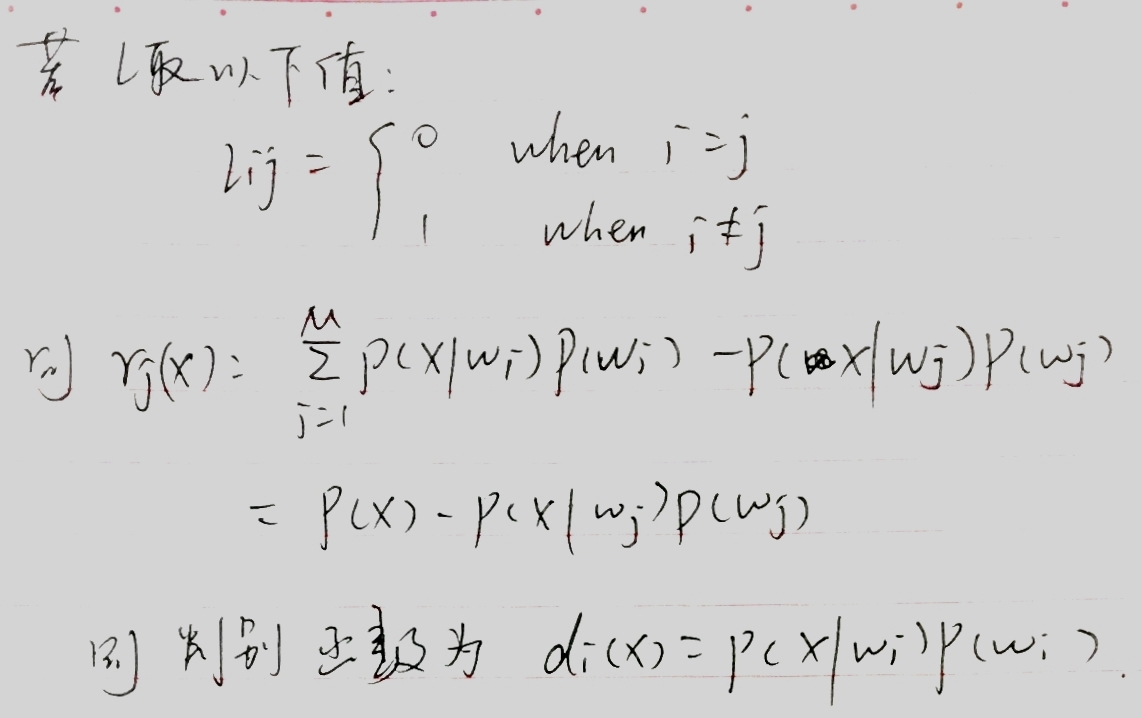 若 L取以下值:
Lij = { 0 when i=j
1 when i≠j
则 rj(x) = M∑i=1 p(x|wi)P(wi) - P(x|wj)P(wj)
= P(x) - p(x|wj)p(wj)
则 判别函数为 di(x) = p(x|wi)P(wi).